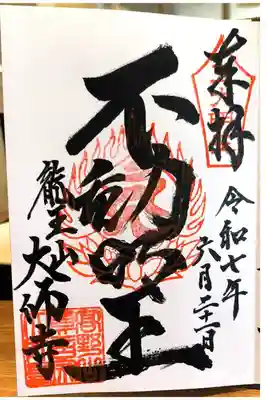 奉拝
令和七年
六月二十一日
不動明王
龍王山
大師寺